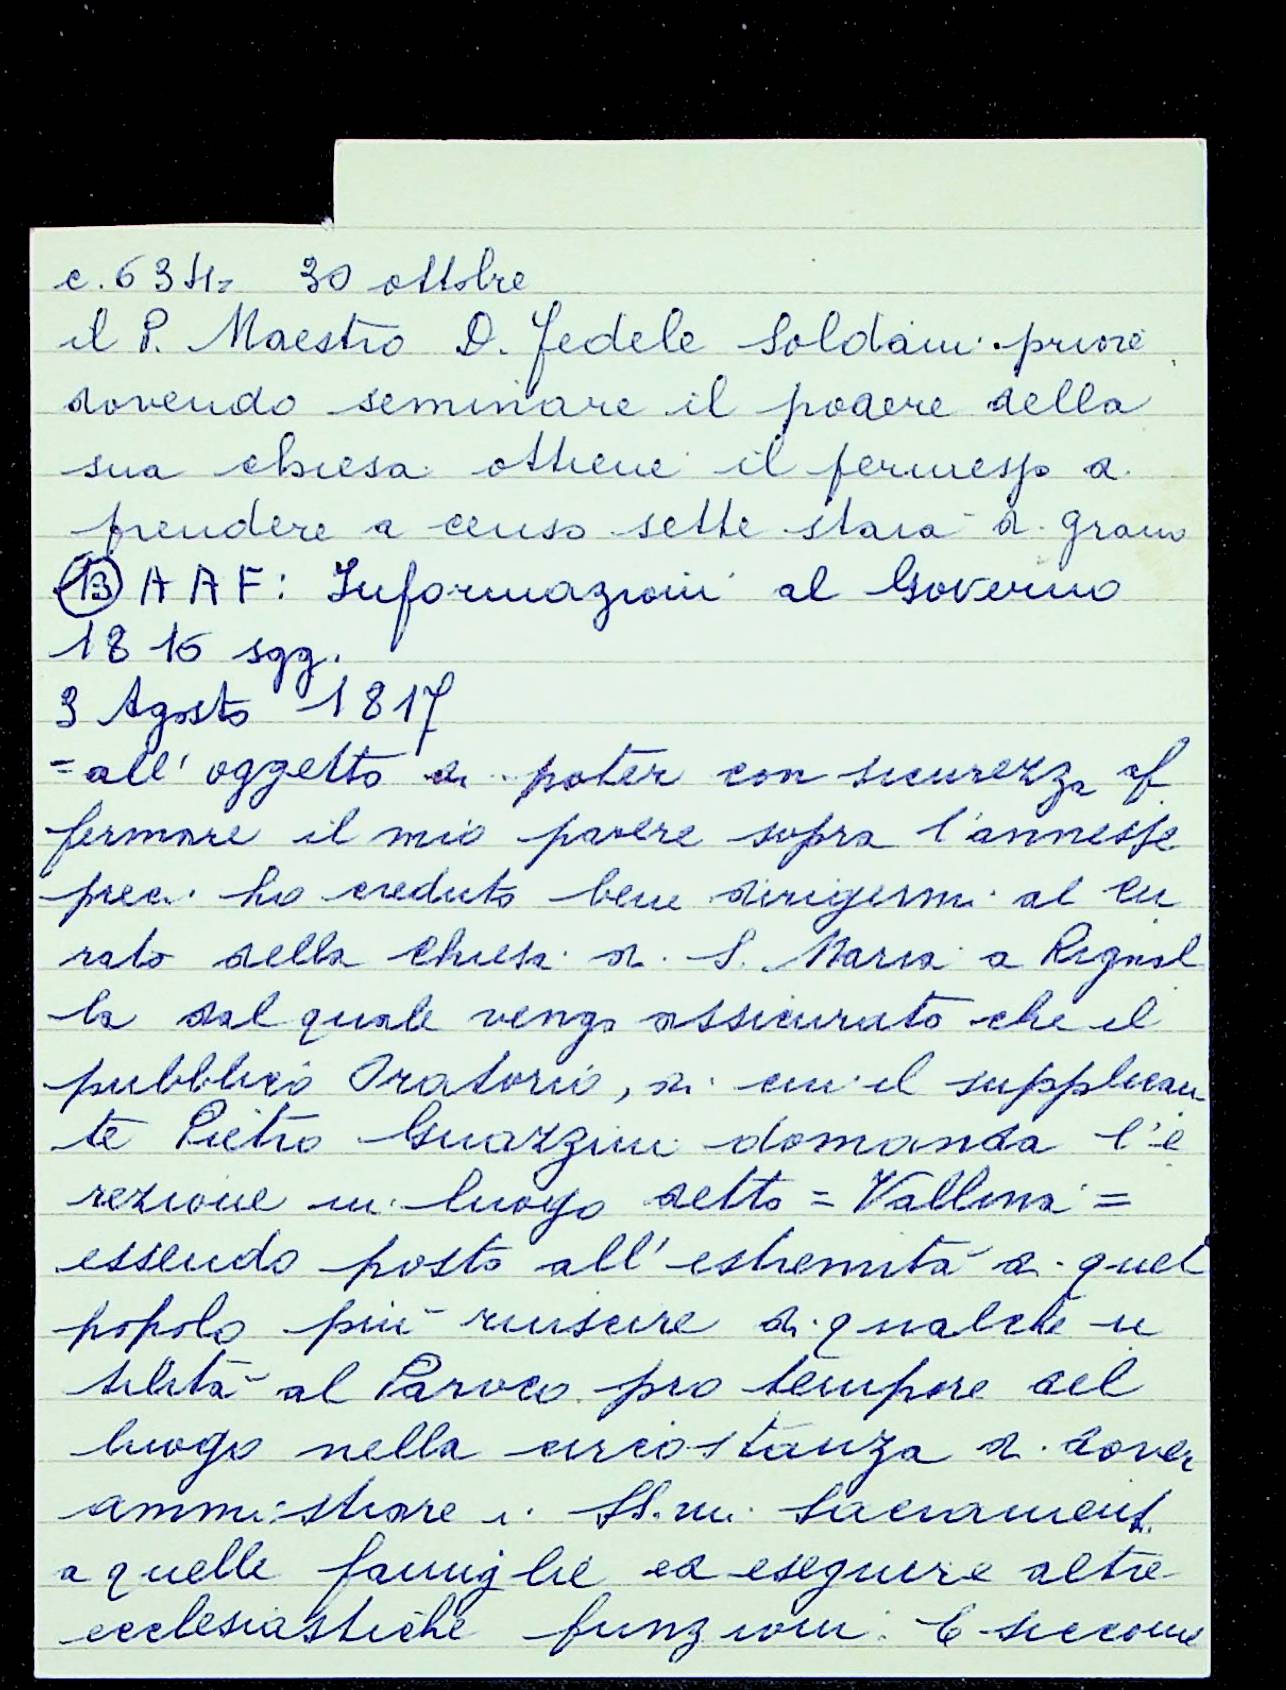 c. 63 30 ottobre
il P. Maestro D. Fedele Soldaini priore
dovendo seminare il podere della
sua chiesa ottiene il permesso di
prendere a censo sette staia di grano
13 AAF: Informazioni al Governo
1816 sgg.
3 Agosto 1817
= all' oggetto di poter con sicurezza af
fermare il mio parere sopra l'annesse
preci ho creduto bene dirigermi al cu
rato della Chiesa di S. Maria a Rignal
la dal quale vengo assicurato che il
pubblico Oratorio, di cui il supplican
te Pietro Guazzini domanda l'e
rezione in luogo detto = Vallina =
essendo posto all' estremità di quel
popolo più riuscire di qualche u
tilità al Paroco pro tempore del
luogo nella circostanza di dover
amministrare i SS.mi Sacramenti
a quelle famiglie ed eseguire altre
ecclesiastiche funzioni. E siccome